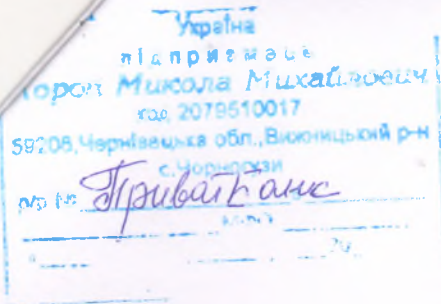 Україна
підприємець
Микола Михайлович
код 2079510017
59208, Чернівецька обл., Вижницький р-н
с. Чорногузи
р/р № ПриватБанк
20